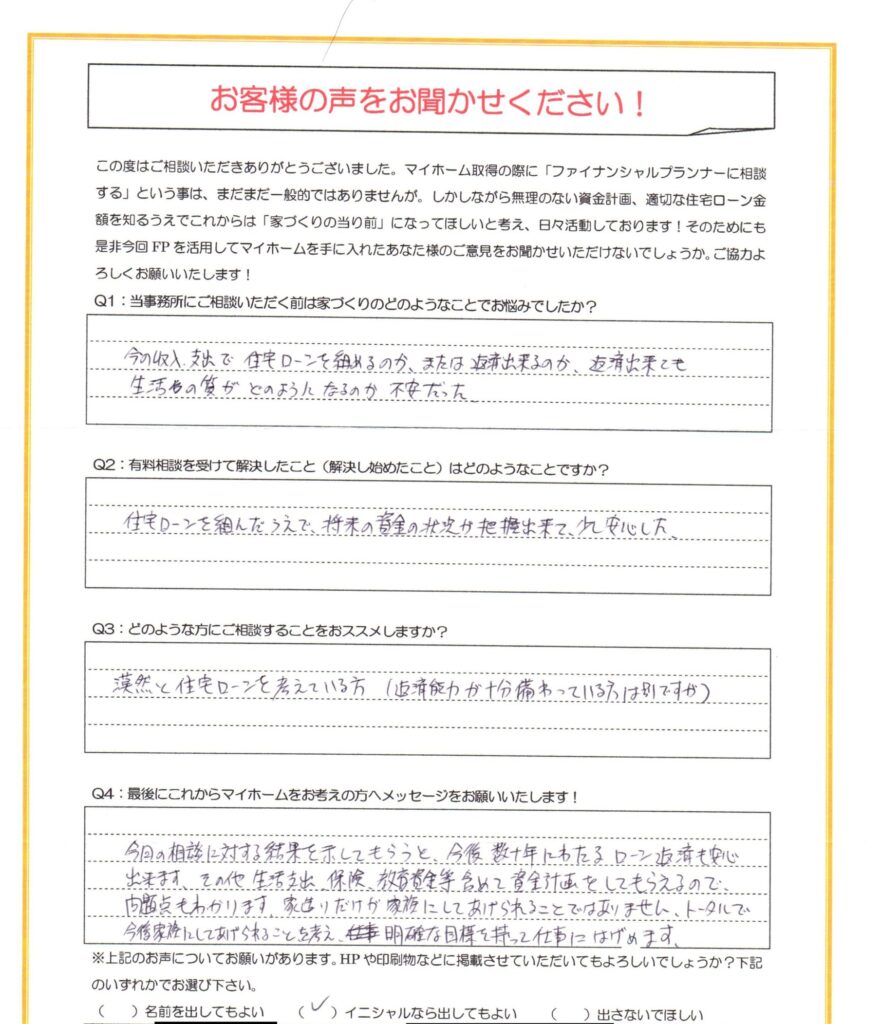 お客様の声をお聞かせください！
この度はご相談いただきありがとうございました。マイホーム取得の際に「ファイナンシャルプランナーに相談
する」という事は、まだまだ一般的ではありませんが。しかしながら無理のない資金計画、適切な住宅ローン金
額を知るうえでこれからは「家づくりの当り前」になってほしいと考え、日々活動しております！そのためにも
是非今回 FP を活用してマイホームを手に入れたあなた様のご意見をお聞かせいただけないでしょうか。ご協力よ
ろしくお願いいたします！
Q1：当事務所にご相談いただく前は家づくりのどのようなことでお悩みでしたか？
今の収入、支出で 住宅ローンを組めるのか、または返済出来るのか、返済出来ても
生活の質がどのようになるのか 不安だった
Q2：有料相談を受けて解決したこと（解決し始めたこと）はどのようなことですか？
住宅ローンを組んだうえで、将来の資金の状況が把握出来て、少し安心した、
Q3：どのような方にご相談することをおススメしますか？
漠然と住宅ローンを考えている方（返済能力が十分備わっている方は別ですが）
Q4：最後にこれからマイホームをお考えの方へメッセージをお願いいたします！
今回の相談に対する結果を示してもらうと、今後数十年にわたるローン返済も安心
出来ます、その他 生活支出、保険、教育資金等含めて資金計画をしてもらえるので、
問題点もわかります、家造りだけが家族にしてあげられることではありません、トータルで
今後家族にしてあげられることを考え、明確な目標を持って仕事にはげめます、
※上記のお声についてお願いがあります。HP や印刷物などに掲載させていただいてもよろしいでしょうか？下記
のいずれかでお選び下さい。
（　）名前を出してもよい　（✓）イニシャルなら出してもよい　（　）出さないでほしい